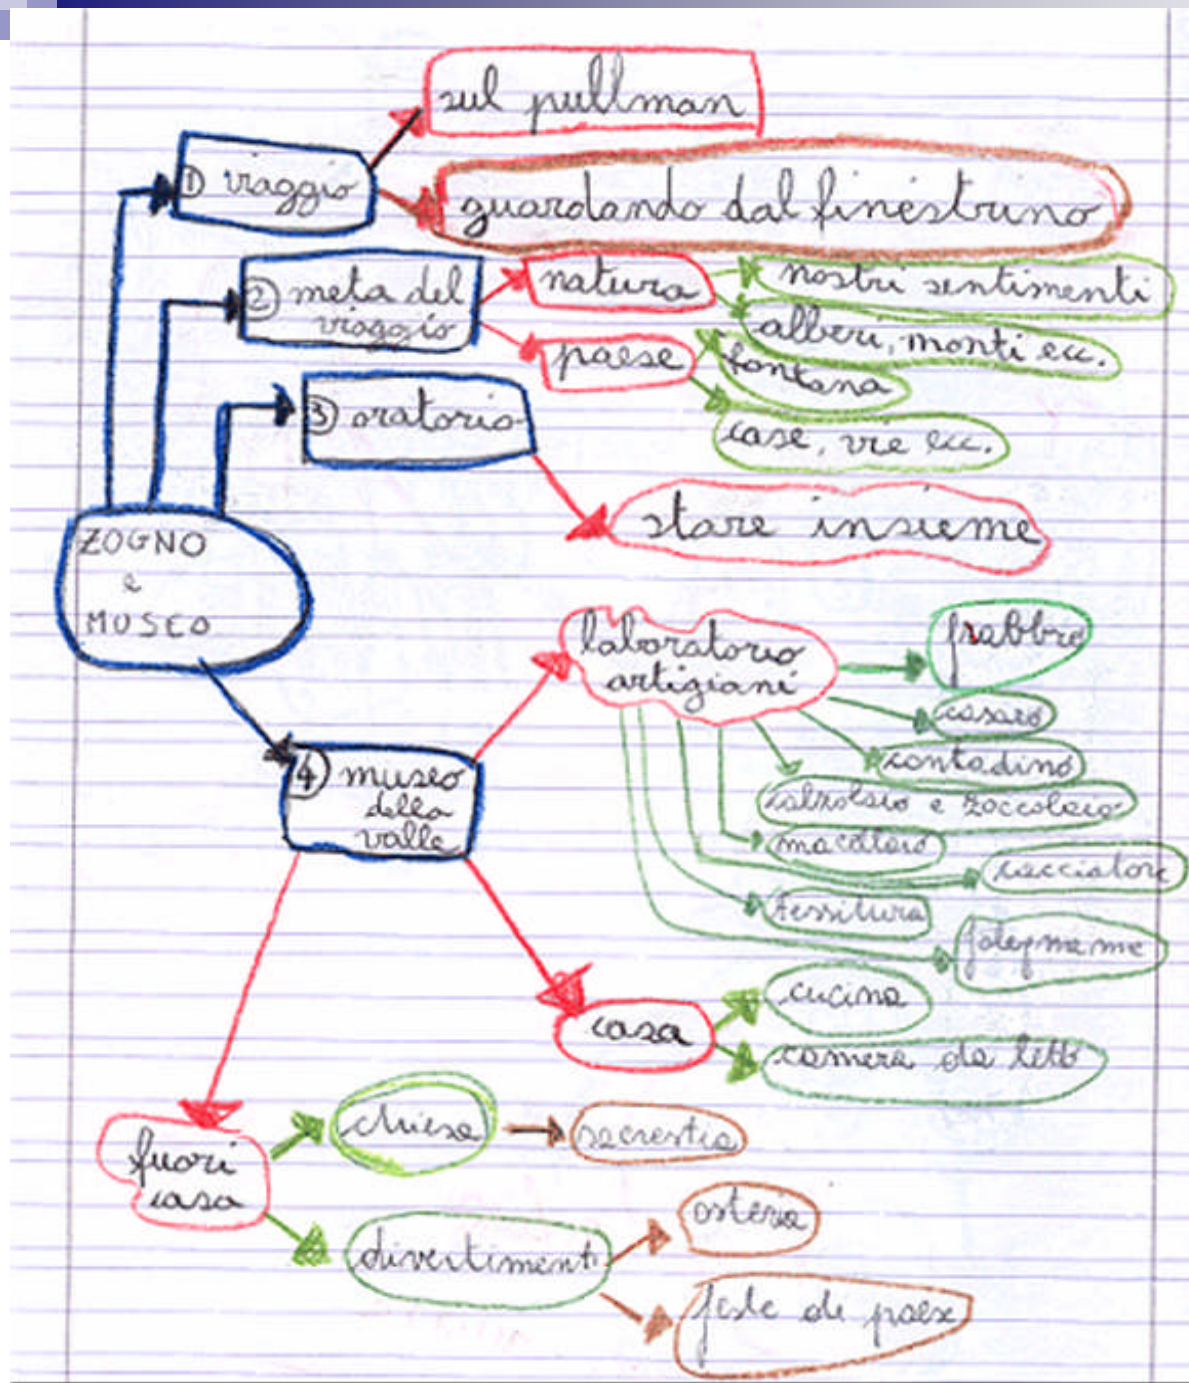 sul pullman
① viaggio
guardando dal finestrino
② meta del
viaggio
natura
nostri sentimenti
alberi, monti ecc.
paese
fontana
case, vie ecc.
③ oratorio
stare insieme
ZOGNO
e
MUSEO
laboratorio
artigiani
frabbro
casaro
contadino
calzolaio e zoccolaio
macellaio
cacciatore
tessitura
falegname
④ museo
della
valle
casa
cucina
camera da letto
fuori
casa
chiesa
sacrestia
divertimenti
osteria
feste di paese